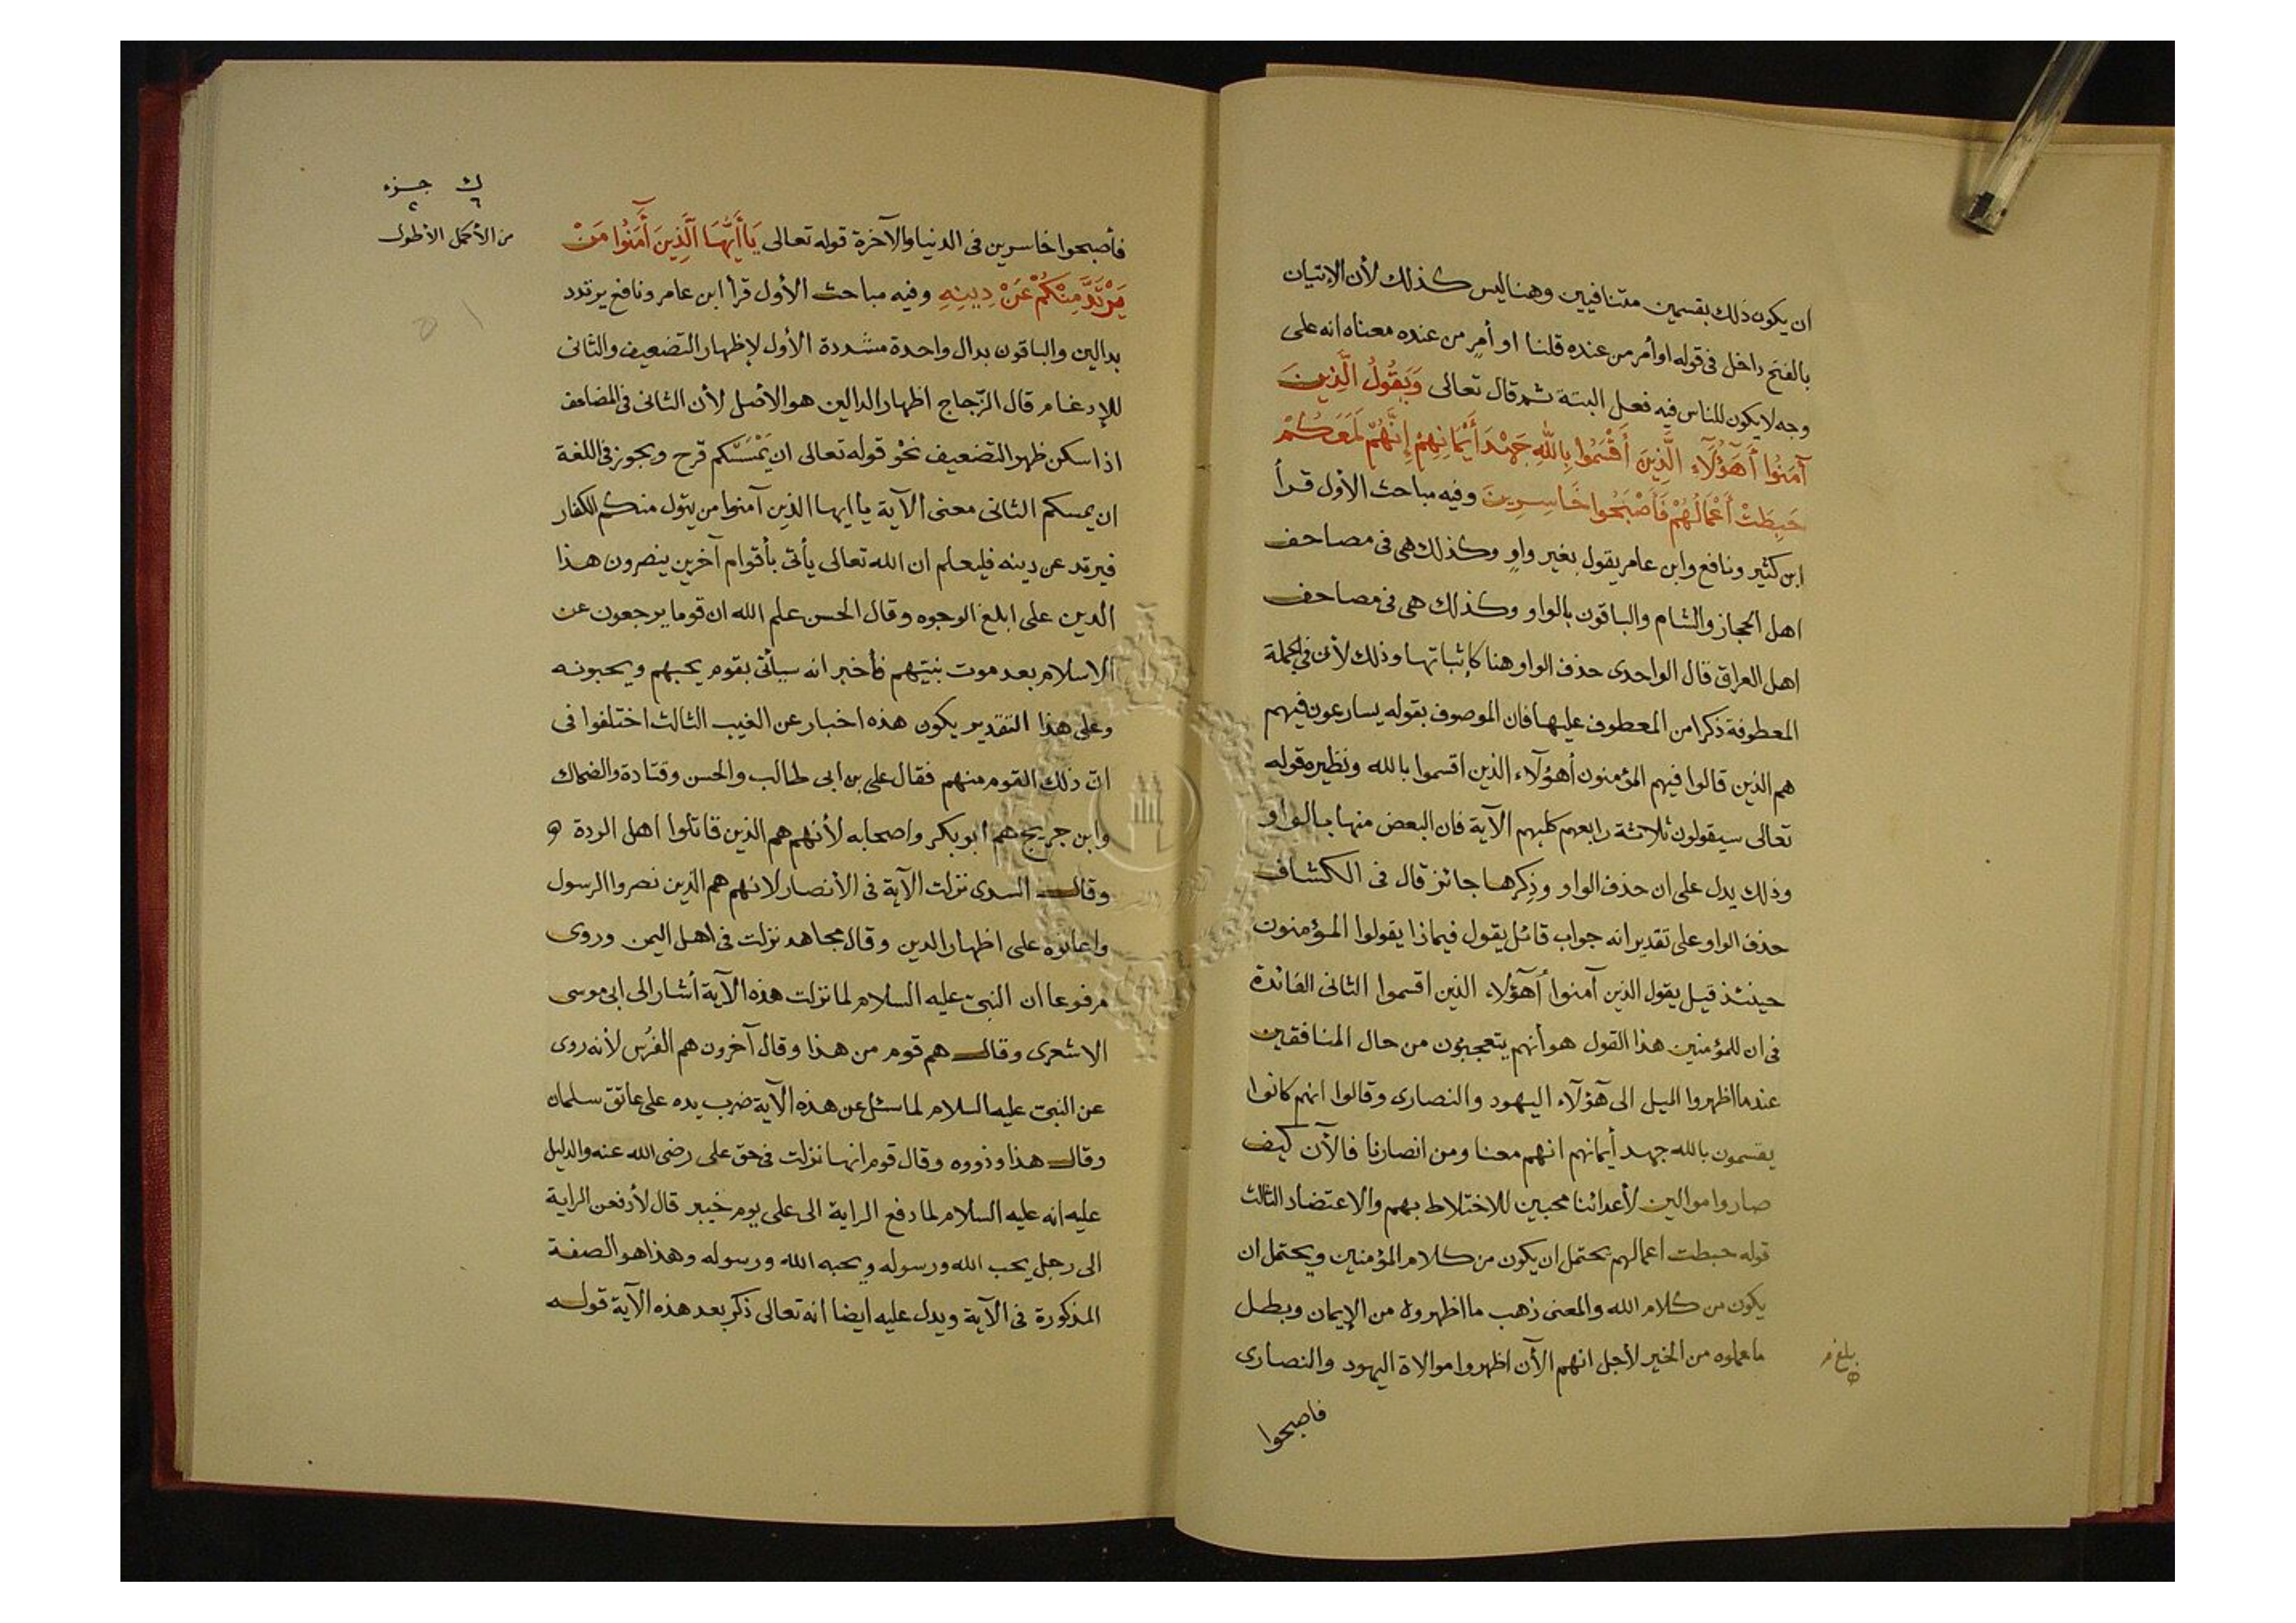 ان يكون ذلك بقسمين متنافيين وهنا ليس كذلك لأن الإتيان
بالفتح داخل فى قوله او أمر من عنده قلنا او أمرٍ من عنده معناه انه على
وجه لا يكون للناس فيه فعل البتة ثم قال تعالى وَيَقُولُ الَّذِينَ
آمَنُوا أَهَؤُلَآءِ الَّذِينَ أَقْسَمُوا بِاللَّهِ جَهْدَ أَيْمَانِهِمْ إِنَّهُمْ لَمَعَكُمْ
حَبِطَتْ أَعْمَالُهُمْ فَأَصْبَحُوا خَاسِرِينَ وفيه مباحث الأول قرأ
ابن كثير ونافع وابن عامر يقول بغير واوٍ وكذلك هى فى مصاحف
اهل الحجاز والشام والباقون بالواو وكذلك هى فى مصاحف
اهل العراق قال الواحدى حذف الواو هنا كإثباتها وذلك لأن فى الجملة
المعطوفة ذكرا من المعطوف عليها فان الموصوف بقوله يسارعون فيهم
هم الذين قالوا فيهم المؤمنون أهؤلآء الذين اقسموا بالله ونظيره قوله
تعالى سيقولون ثلاثة رابعهم كلبهم الآية فان البعض منها بالواو
وذلك يدل على ان حذف الواو وذِكرها جائز قال فى الكشاف
حذف الواو على تقدير انه جواب قائل يقول فيماذا يقولوا المؤمنون
حينئذ قيل يقول الذين آمنوا أهؤلاء الذين اقسموا الثانى الفائدة
فى ان للمؤمنين هذا القول هو أنهم يتعجبون من حال المنافقين
عندما اظهروا الميل الى هؤلآء اليهود والنصارى وقالوا انهم كانوا
يقسمون بالله جهد أيمانهم انهم معنا ومن انصارنا فالآن كيف
صاروا موالين لأعدائنا محبين للاختلاط بهم والاعتضاد الثالث
قوله حبطت اعمالهم يحتمل ان يكون من كلام المؤمنين ويحتمل ان
يكون من كلام الله والمعنى ذهب ما اظهروه من الإيمان وبطل
ما عملوه من الخير لأجل انهم الآن اظهروا موالاة اليهود والنصارى
فاصبحوا
بلغ
فأصبحوا خاسرين فى الدنيا والآخرة قوله تعالى يَا أَيُّهَا الَّذِينَ آمَنُوا مَنْ
يَرْتَدَّ مِنْكُمْ عَنْ دِينِهِ وفيه مباحث الأول قرأ ابن عامر ونافع يرتدد
بدالين والباقون بدال واحدة مشددة الأول لإظهار التضعيف والثانى
للإدغام قال الزّجاج اظهار الدالين هو الأصل لأن الثانى فى المضاعف
اذا سكن ظهر التضعيف نحو قوله تعالى ان يَمْسَسْكم قرح ويجوز فى اللغة
ان يمسكم الثانى معنى الآية يا ايها الذين آمنوا من يتول منكم الكفار
فيرتد عن دينه فليعلم ان الله تعالى يأتى بأقوام آخرين ينصرون هذا
الدين على ابلغ الوجوه وقال الحسن علم الله ان قوما يرجعون عن
الاسلام بعد موت نبيهم فأخبر انه سيأتى بقوم يحبهم ويحبونه
وعلى هذا التقدير يكون هذه اخبار عن الغيب الثالث اختلفوا فى
انّ ذلك القوم منهم فقال على بن ابى طالب والحسن وقتادة والضحاك
وابن جريج هم ابو بكر واصحابه لأنهم هم الذين قاتلوا اهل الردة
وقال السدى نزلت الآية فى الأنصار لانهم هم الذين نصروا الرسول
واعانوه على اظهار الدين وقال مجاهد نزلت فى اهل اليمن وروى
مرفوعا ان النبىّ عليه السلام لما نزلت هذه الآية أشار الى ابى موسى
الاشعرى وقال هم قوم من هذا وقال آخرون هم الفُرس لأنه روى
عن النبىّ عليه السلام لما سئل عن هذه الآية ضرب يده على عاتق سلمان
وقال هذا وذووه وقال قوم انها نزلت فى حق على رضى الله عنه والدليل
عليه انه عليه السلام لما دفع الراية الى على يوم خيبر قال لأدفعن الراية
الى رجل يحب الله ورسوله ويحبه الله ورسوله وهذا هو الصفة
المذكورة فى الآية ويدل عليه ايضا انه تعالى ذكر بعد هذه الآية قوله
ك جزء
٦ ٢
من الأكمل الأطول